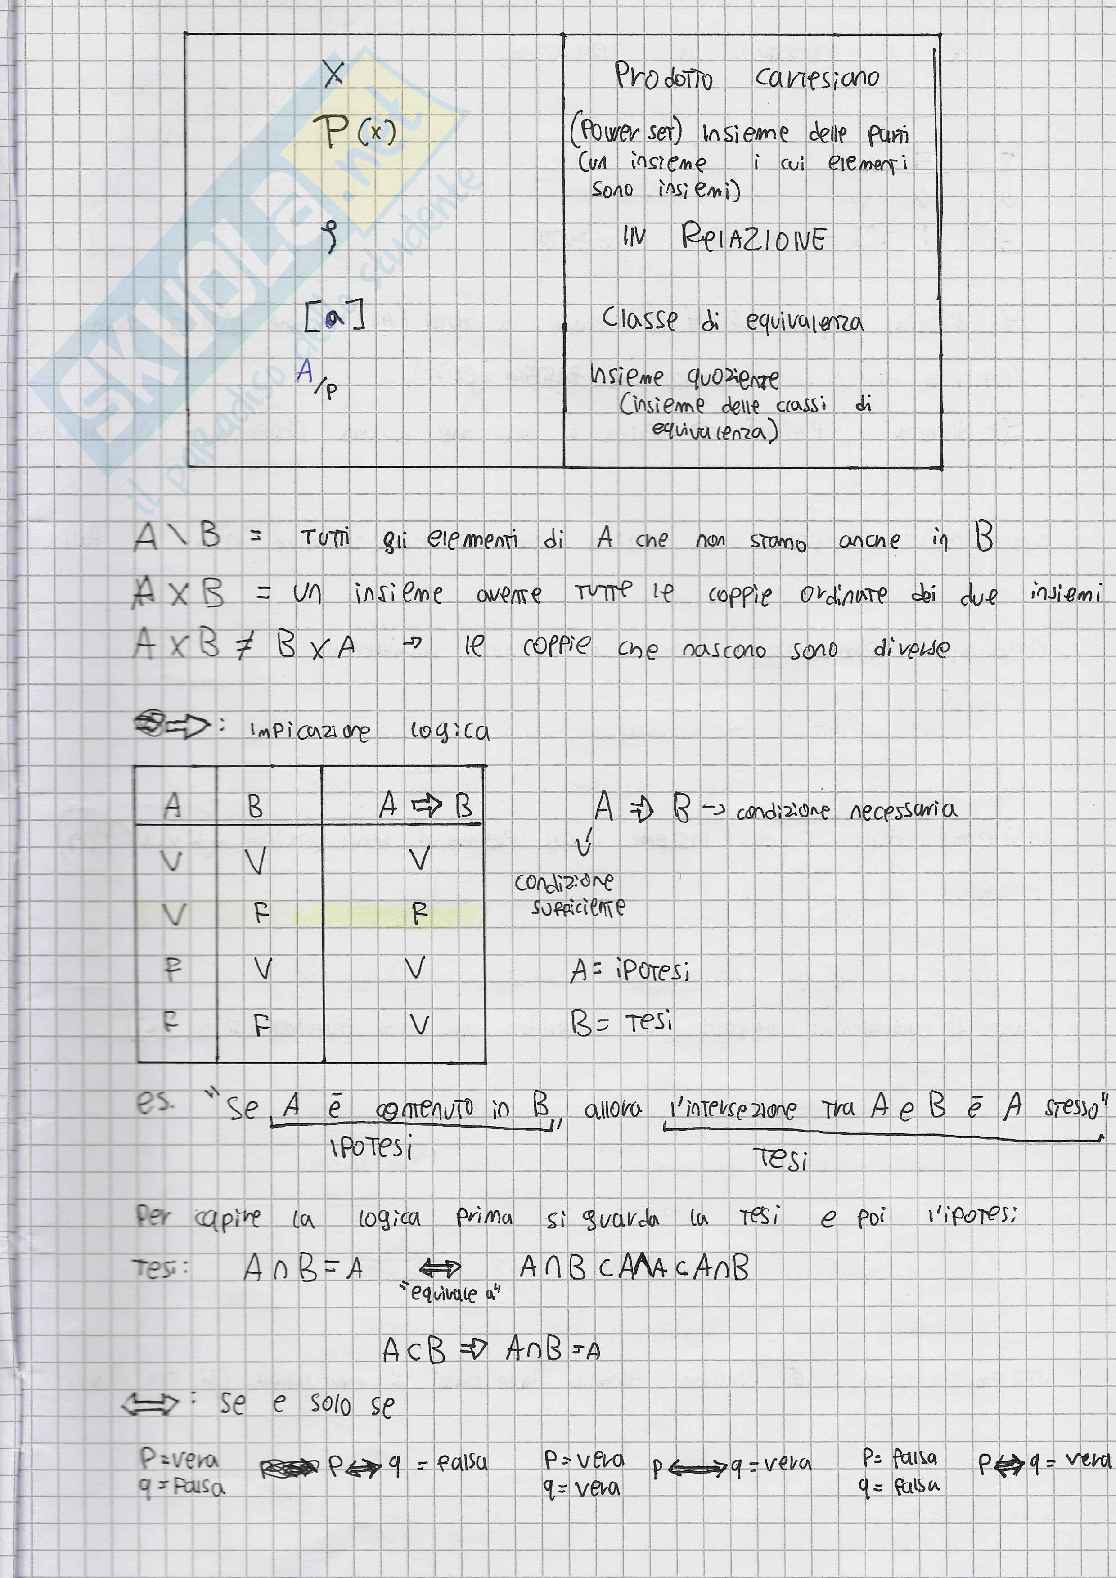 X Prodotto cartesiano
P(x) (Power set) Insieme delle parti
(un insieme i cui elementi
sono insiemi)
ρ IN RELAZIONE
[a] Classe di equivalenza
A/ρ Insieme quoziente
(insieme delle classi di
equivalenza)
SKUOLA.net
il paradiso dello studente
A \ B = tutti gli elementi di A che non stanno anche in B
A X B = un insieme avente tutte le coppie ordinate dei due insiemi
A X B ≠ B X A → le coppie che nascono sono diverse
⇒: impicazione logica
A B A ⇒ B
V V V
V F F
F V V
F F V
A ⇒ B → condizione necessaria
↓
condizione
sufficiente
A = ipotesi
B = tesi
es. "Se A è contenuto in B, allora l'intersezione tra A e B è A stesso"
IPOTESI TESI
Per capire la logica prima si guarda la tesi e poi l'ipotesi
Tesi: A ∩ B = A ⇔ A ∩ B ⊂ A ∧ A ⊂ A ∩ B
"equivale a"
A ⊂ B ⇒ A ∩ B = A
⇔: se e solo se
P = vera P ⇔ q = falsa P = vera P ⇔ q = vera P = falsa P ⇔ q = vera
q = falsa q = vera q = falsa